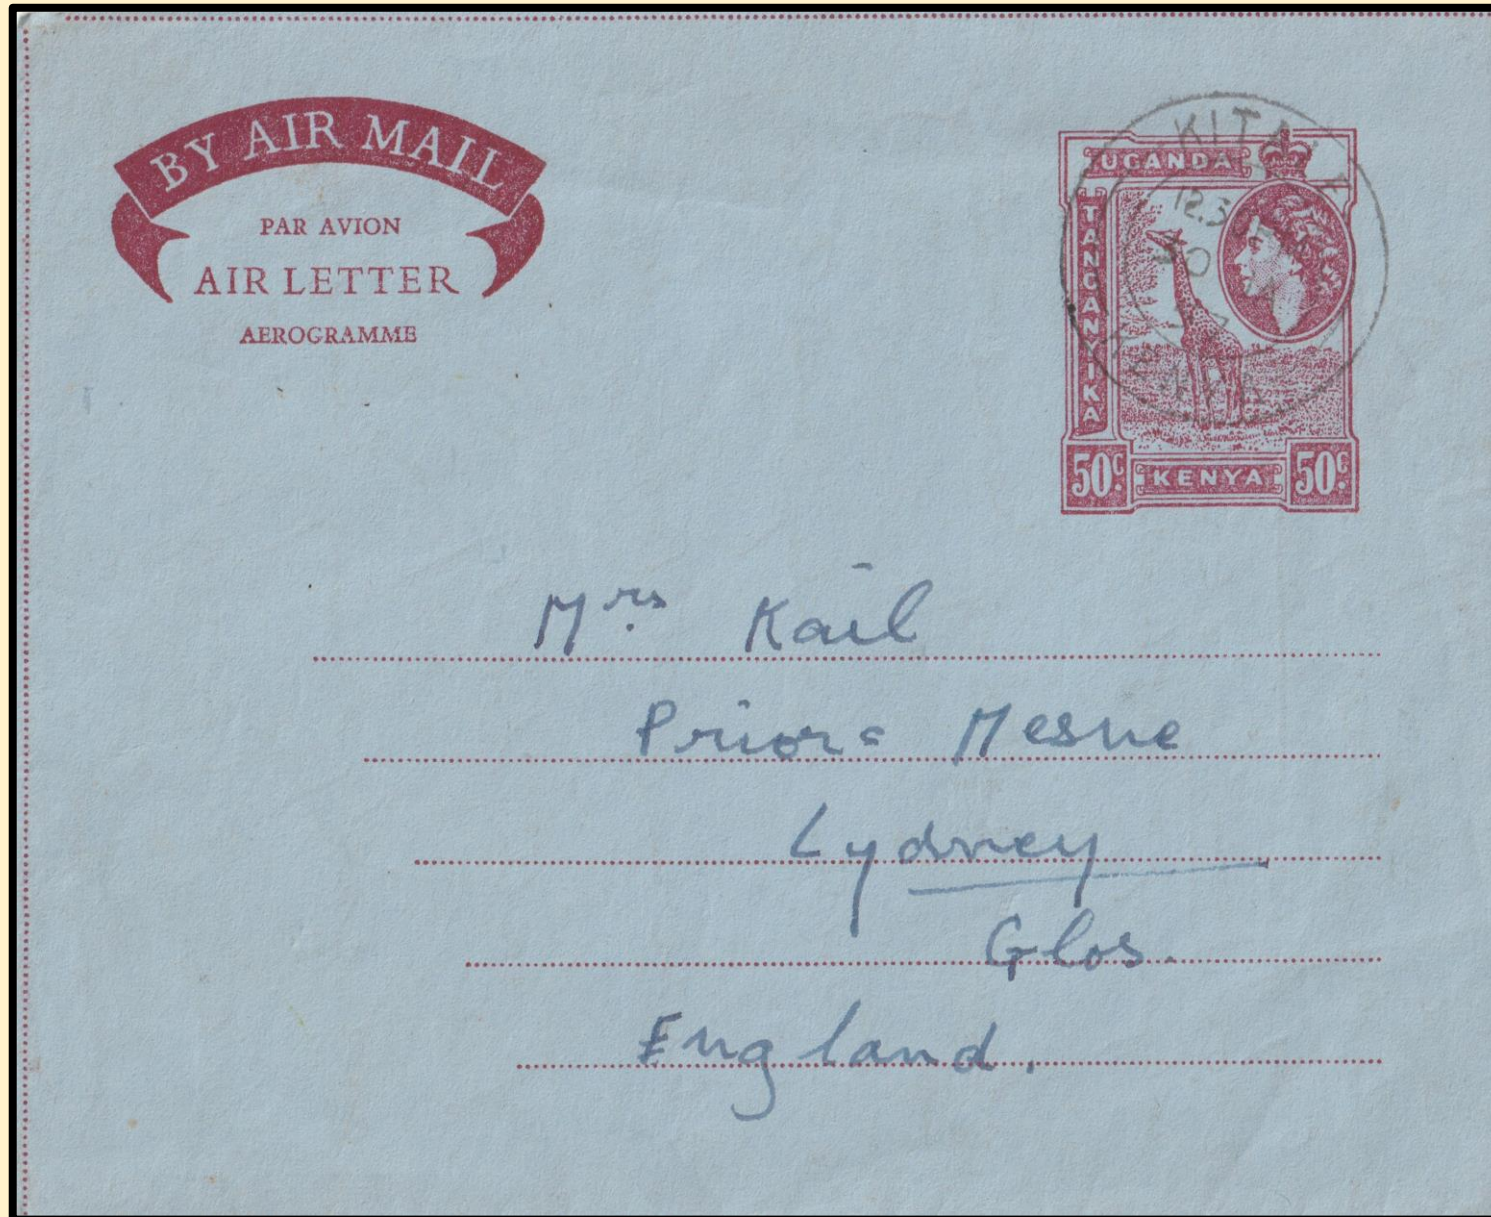 BY AIR MAIL
PAR AVION
AIR LETTER
AEROGRAMME
UGANDA
TANGANYIKA
50c.
KENYA
50c.
KENYA
Mrs Kail
Priors Mesne
Lydney
Glos.
England.